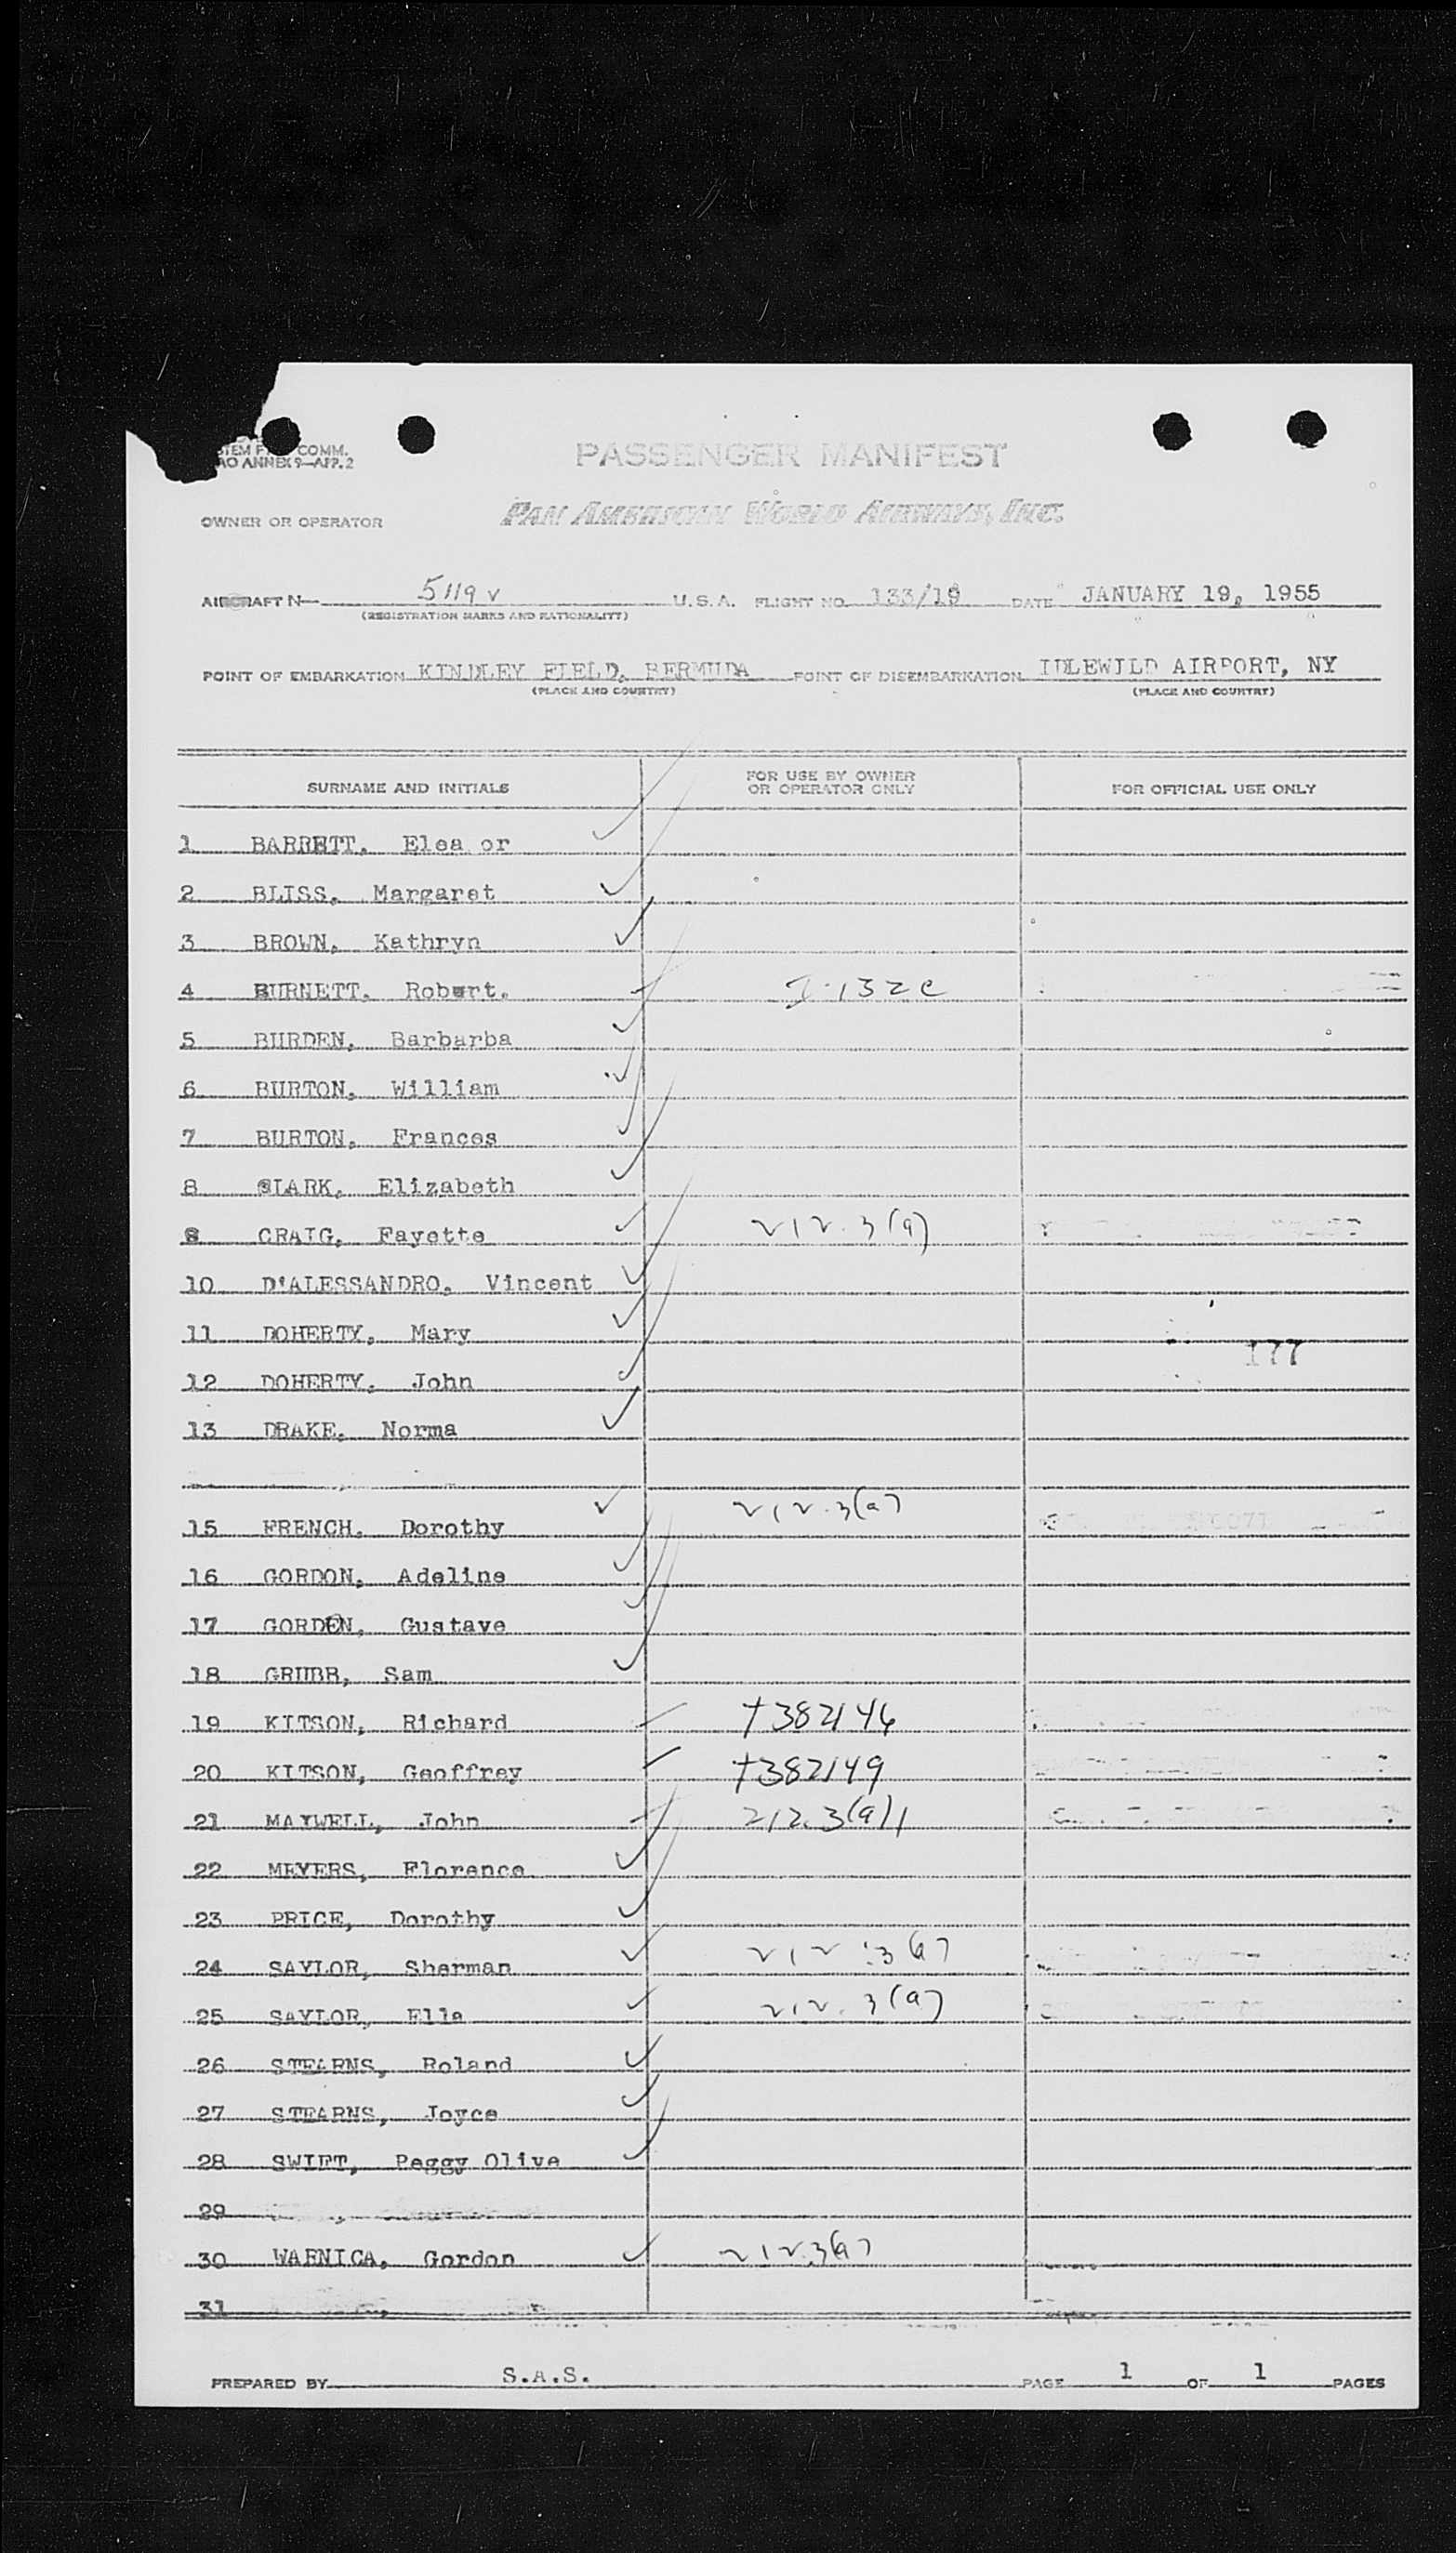 COMM.
ANNEX 9—APP. 2
PASSENGER MANIFEST
OWNER OR OPERATOR PAN AMERICAN WORLD AIRWAYS, INC.
AIRCRAFT N— 5119 V U.S.A. FLIGHT NO. 133/19 DATE JANUARY 19, 1955
(REGISTRATION MARKS AND NATIONALITY)
POINT OF EMBARKATION KINDLEY FIELD, BERMUDA POINT OF DISEMBARKATION IDLEWILD AIRPORT, NY
(PLACE AND COUNTRY) (PLACE AND COUNTRY)
SURNAME AND INITIALS FOR USE BY OWNER OR OPERATOR ONLY FOR OFFICIAL USE ONLY
1 BARRETT, Elea or
2 BLISS, Margaret
3 BROWN, Kathryn
4 BURNETT, Robert. I-132c
5 BURDEN, Barbarba
6 BURTON, William
7 BURTON, Frances
8 CLARK, Elizabeth
CRAIG, Fayette 212.3(a)
10 D'ALESSANDRO, Vincent
11 DOHERTY, Mary
177
12 DOHERTY, John
13 DRAKE, Norma
15 FRENCH, Dorothy 212.3(a)
16 GORDON, Adeline
17 GORDEN, Gustave
18 GRUBB, Sam
19 KITSON, Richard T382146
20 KITSON, Geoffrey T382149
21 MAXWELL, John 212.3(a)1
22 MEYERS, Florence
23 PRICE, Dorothy
24 SAYLOR, Sherman 212.3(a)
25 SAYLOR, Ella 212.3(a)
26 STEARNS, Roland
27 STEARNS, Joyce
28 SWIFT, Peggy Olive
29
30 WARNICA, Gordon 212.3(a)
31
PREPARED BY S.A.S. PAGE 1 OF 1 PAGES